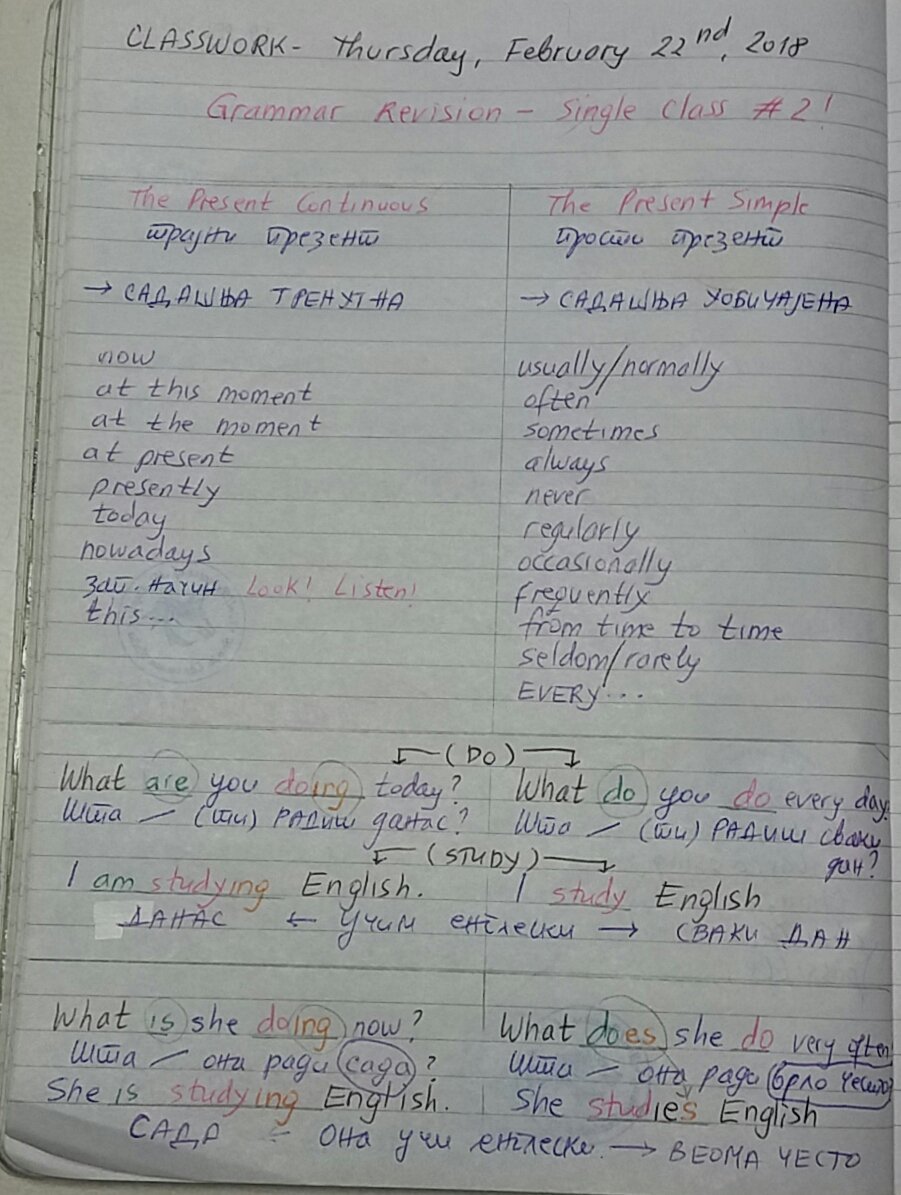 CLASSWORK - Thursday, February 22nd, 2018
Grammar Revision - Single Class #2!
The Present Continuous
трајни презент
→ САДАШЊА ТРЕНУТНА
now
at this moment
at the moment
at present
presently
today
nowadays
зап. начин Look! Listen!
this...
The Present Simple
прости презент
→ САДАШЊА УОБИЧАЈЕНА
usually/normally
often
sometimes
always
never
regularly
occasionally
frequently
from time to time
seldom/rarely
EVERY...
(DO)
What are you doing today?
Шта – (ти) РАДИШ данас?
What do you do every day?
Шта – (ти) РАДИШ сваки дан?
(STUDY)
I am studying English.
I study English
ДАНАС ← УЧИМ енглески → СВАКИ ДАН
What is she doing now?
Шта – она ради сада?
She is studying English.
What does she do very often
Шта – она ради врло често
She studies English
САДА – Она учи енглески → ВЕОМА ЧЕСТО